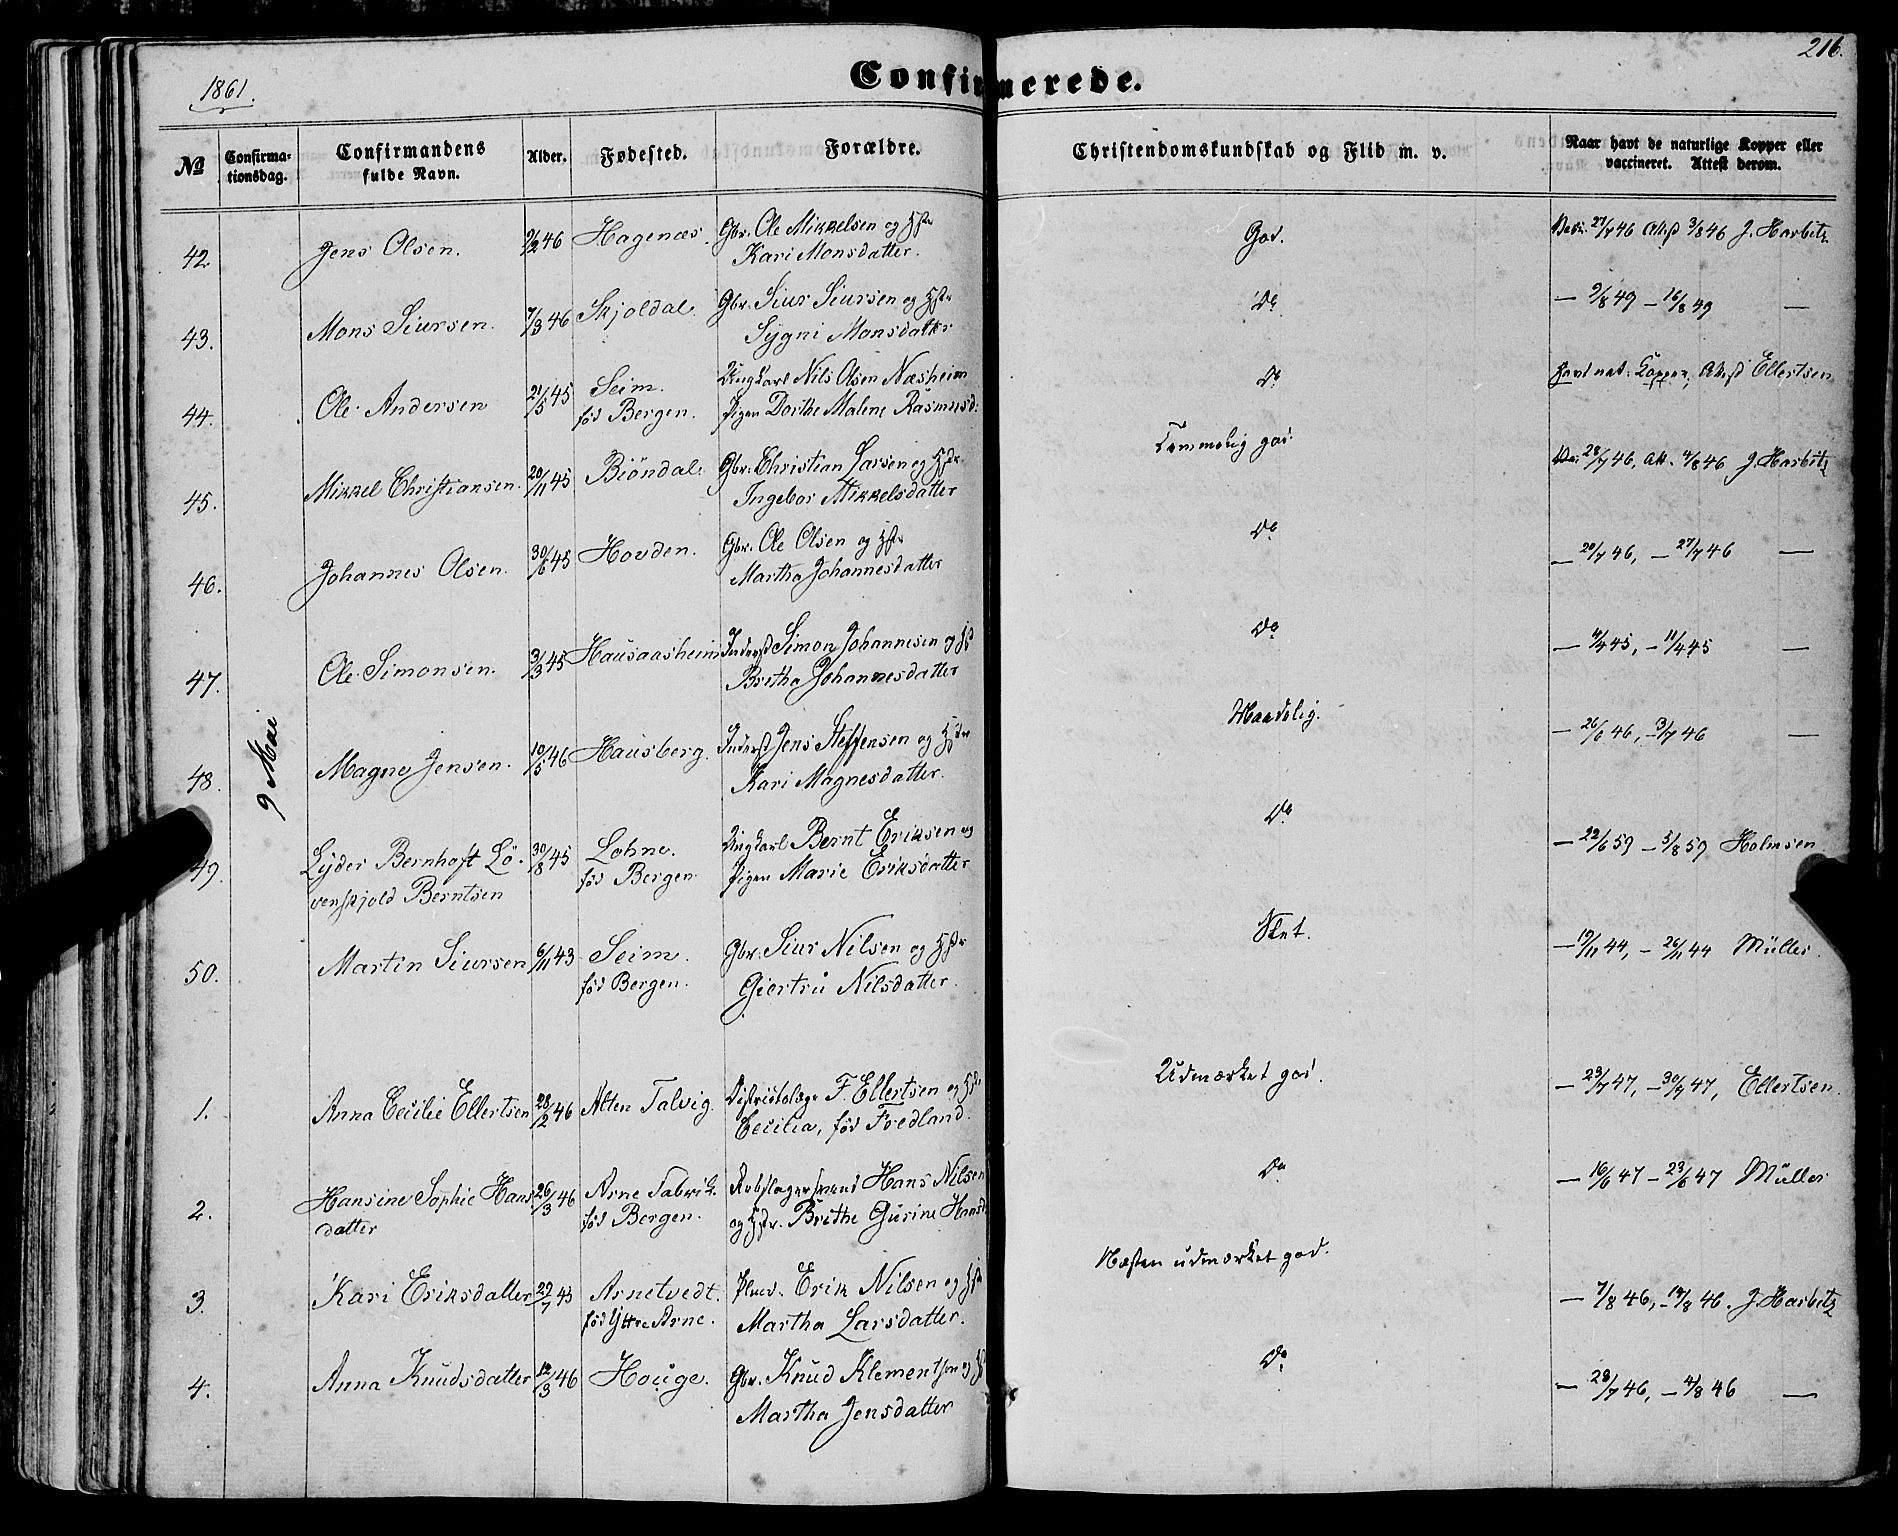 1861.
Confirmerede.
216.
No
Confirma-
tionsdag.
Confirmandens
fulde Navn.
Alder.
Fødested.
Forældre.
Christendomskundskab og Flid m. v.
Naar havt de naturlige Kopper eller
vaccineret. Attest derom.
9 Mai
42. Jens Olsen. 9/2 46 Hagenæs. Gbr. Ole Mikkelsen og Hstr God. 27/7 46 Attest 3/8 46 J. Harbitz
Kari Monsdatter.
43. Mons Siursen. 7/3 46 Skjoldal. Gbr. Siur Siursen og Hstr Do — 9/8 49 — 16/8 49 —
Sygni Monsdatter
44. Ole Andersen 21/5 45 Seim. Ungkarl Nils Olsen Næsheim Do Havt nat. Kopper, Attest Ellertsen
fød Bergen. Pigen Dorthe Malene Rasmusd:
45. Mikkel Christiansen. 20/11 45 Biöndal. Gbr. Christian Larsen og Hstr Temmelig god. 28/7 46, Att. 4/8 46 J. Harbitz
Ingebor Mikkelsdatter
46. Johannes Olsen. 30/6 45 Hovden. Gbr. Ole Olsen og Hstr Do — 20/7 46, — 27/7 46 —
Martha Johannesdatter
47. Ole Simonsen. 3/3 45 Hausaasheim Inderst Simon Johannesen og Hst Do — 4/4 45, — 11/4 45 —
Britha Johannesdatter
48. Magne Jensen. 10/5 46 Hausberg. Inderst Jens Steffensen og Hstr Maadelig. — 26/6 46, — 3/7 46 —
Kari Magnesdatter.
49. Lyder Bernhoft Lö- 30/8 45 Lohne. Ungkarl Bernt Eriksen og Do — 22/6 59 — 5/8 59 Holmsen
venskjold Berntsen fød Bergen. Pigen Marie Eriksdatter
50. Martin Siursen 6/11 43 Seim. Gbr. Siur Nilsen og Hstr Slet. — 19/11 44, — 26/11 44 Müller.
fød Bergen. Giertru Nilsdatter.
1. Anna Cecilie Ellertsen 28/2 46 Alten Talvig. Districtslæge F. Ellertsen og Hst Udmærket god. — 23/7 47, — 30/7 47, Ellertsen.
Cecilia, fød Fredland.
2. Hansine Sophie Hans 26/3 46 Arne Fabrik. Rebslagersvend Hans Nilsen Do — 16/6 47 — 23/6 47 Müller
datter fød Bergen. og Hstr. Brithe Gurine Hansd
3. Kari Eriksdatter 29/7 45 Arnetvedt. Plads. Erik Nilsen og Hst Næsten udmærket god. — 7/8 46, — 14/8 46. J. Harbitz
fød Ytre Arne. Martha Larsdatter.
4. Anna Knudsdatter 12/3 46 Houge. Gbr. Knud Klementsen og H Do — 28/7 46, — 4/8 46 —
Martha Jensdatter